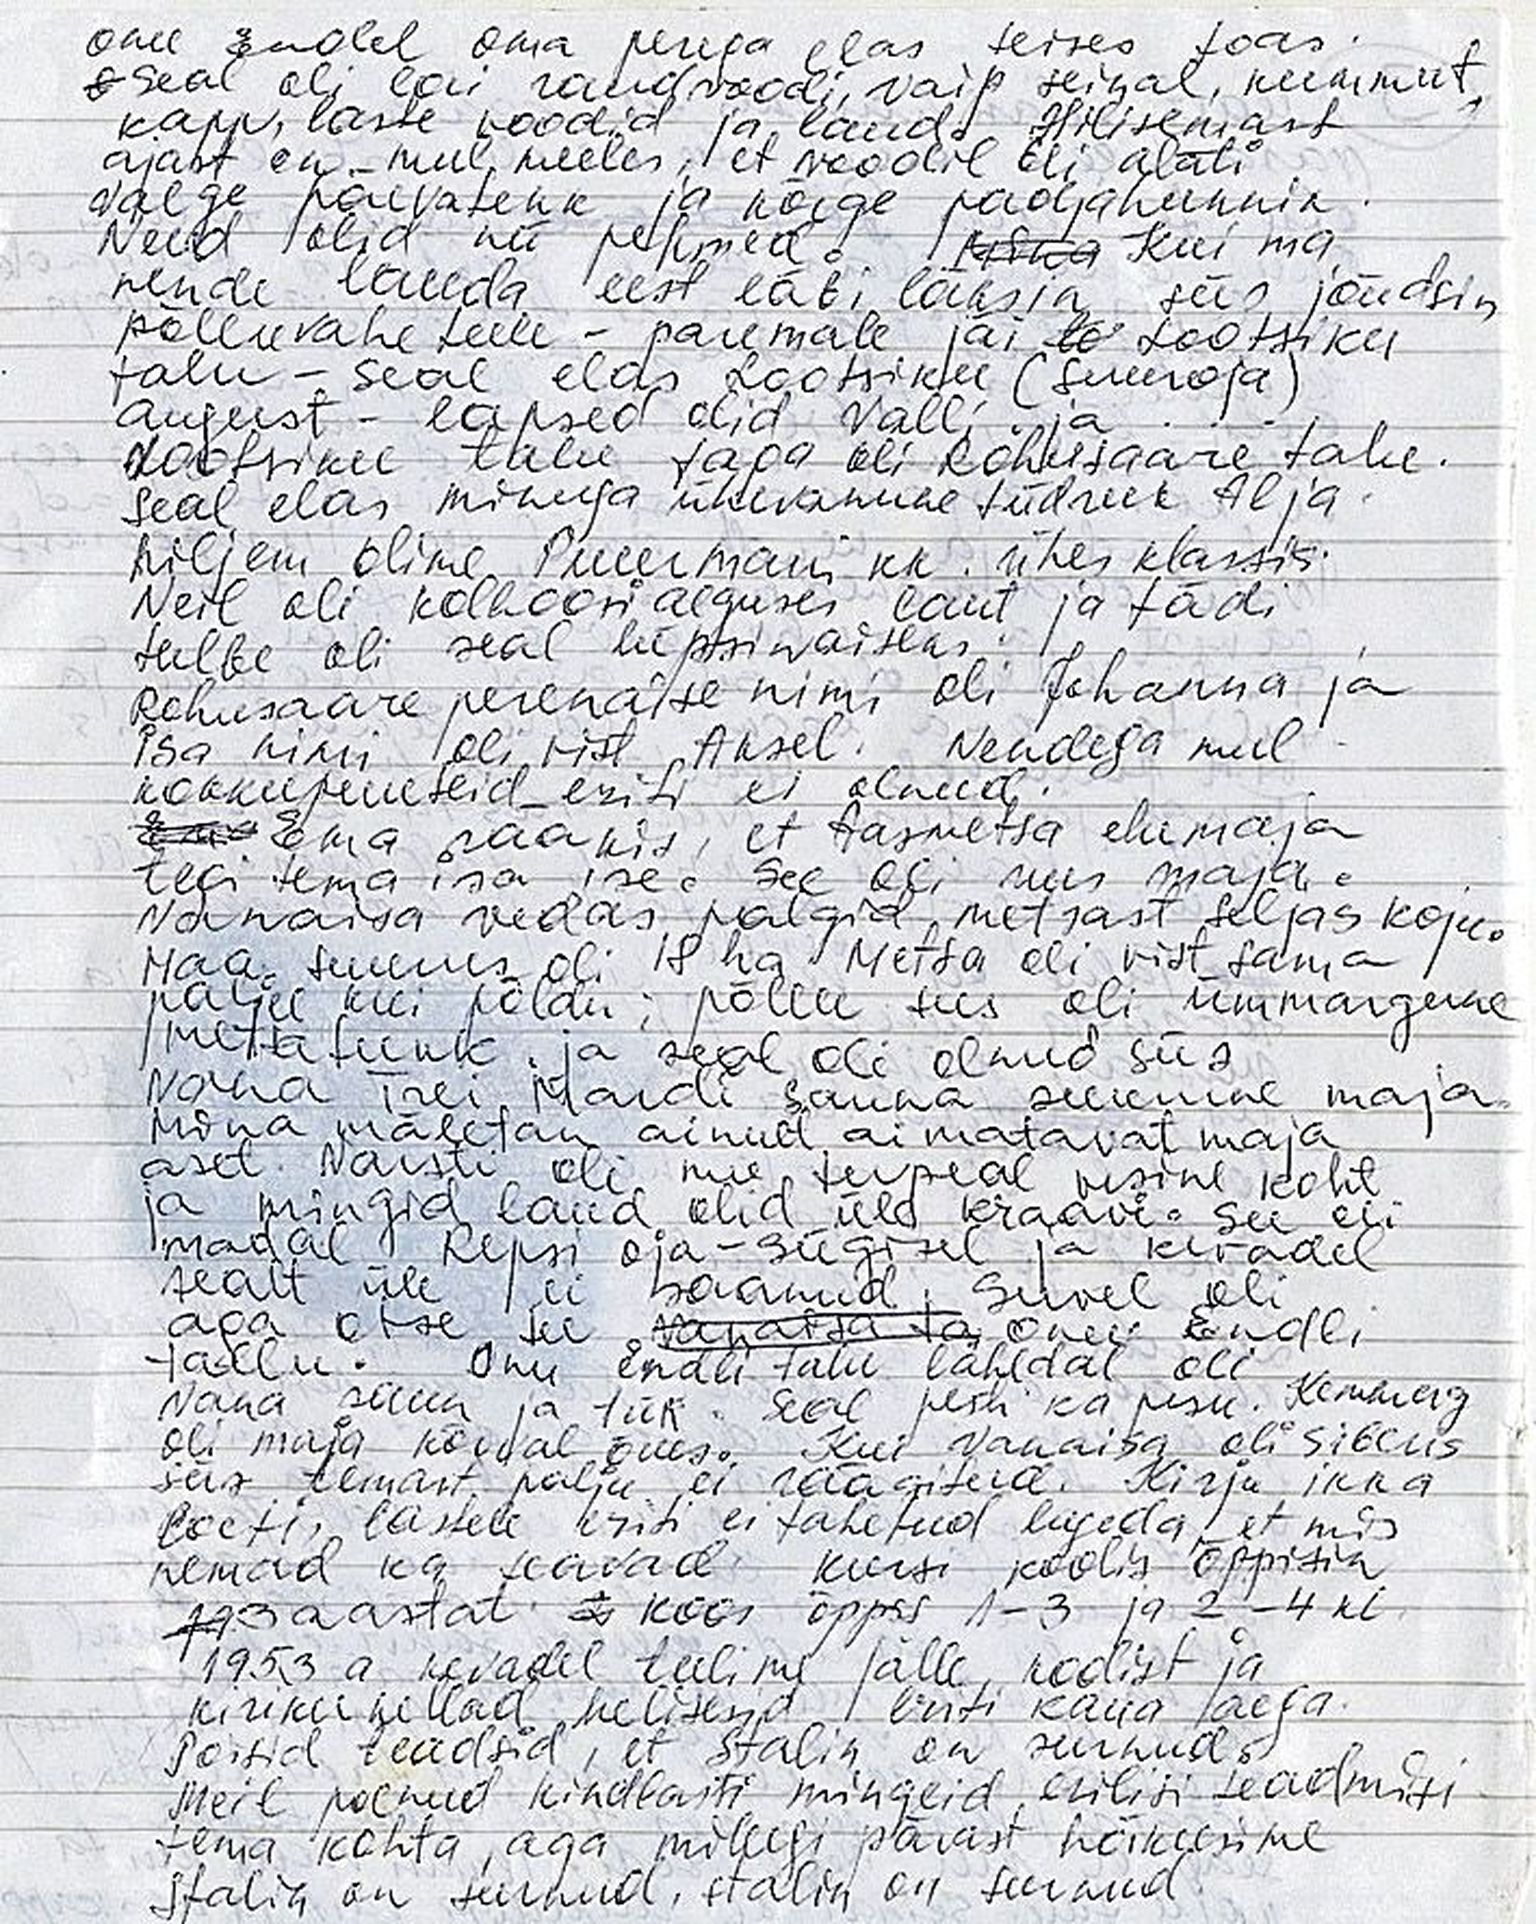 onu Endel oma perega elas teises toas.
Seal oli lai raudvoodi, vaip seinal, kummut,
kapp, laste voodid ja laud. Hilisemast
ajast on mul meeles, et voodil oli alati
valge päevatekk ja kõrge padjahunnik.
Need olid nii pehmed. Kui ma
nende lauda eest läbi läksin siis jõudsin
põlluvahe teele - paremale jäi Lootsiku
talu - seal elas Lootsiku (Suuroja)
August - lapsed olid Valli ja . . . .
Lootsiku talu taga oli Rohusaare talu.
Seal elas minuga ühevanune tüdruk Alja.
hiljem olime Puurmani kk. ühes klassis.
Neil oli kolhoosi alguses laut ja tädi
seal lüpsinaiseks.
Rohusaare perenaise nimi oli Johanna ja
isa nimi oli vist Aksel. Nendega mul
kokkupuuteid eriti ei olnud.
Ema rääkis, et Aasmetsa elumaja
tegi tema isa ise. See oli uus maja.
Vanaisa vedas palgid metsast seljas koju.
Maa suurus oli 18 ha. Metsa oli vist sama
palju kui põldu; põllu sees oli ümmargune
metsatukk ja seal oli olnud siis
Vana Mardi sauna suurune maja.
Mina mäletan ainult aimatavat maja
aset. Varsti oli mu teepeal vesine koht
ja mingid lauad olid üle kraavi. See oli
madal Repsi oja - sügisel ja kevadel
sealt üle ei saanud. Suvel oli
aga otse tee <s>vanaisa ta</s> onu Endli
tallu. Onu Endli talu lähedal oli
Vana saun ja tiik. Seal pesti ka pesu. Kemmerg
oli maja kõrval õues. Kui vanaisa oli Siberis
siis temast palju ei räägitud. Kirju ikka
loeti, lastele eriti ei tahetud lugeda, et mis
nemad ka teavad. Kursi koolis õppisin
3 aastat. Koos õppis 1-3 ja 2-4 kl.
1953 a kevadel tulime jälle koolist ja
kirikukellad helisesid eriti kaua aega.
Poisid teadsid, et Stalin on surnud.
Meil polnud kindlasti mingeid erilisi teadmisi
tema kohta, aga millegi pärast hõikusime
Stalin on surnud, stalin on surnud.